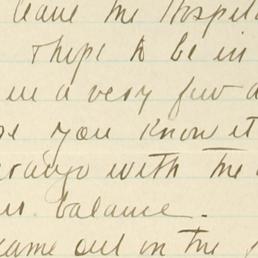 leave the Hospit
I hope to be in
in a very few d
se you know it
range with the
balance.
came out in the